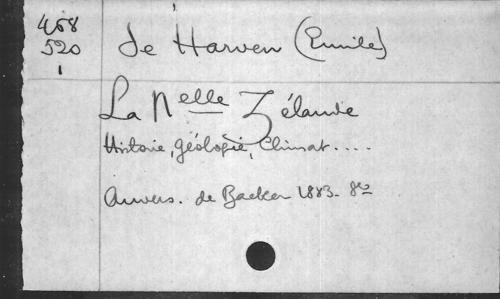 468
520
1
de Harven (Emile)
La Nelle Zélande
Histoire, géologie, Climat ....
Anvers. de Backer 1883. 8º